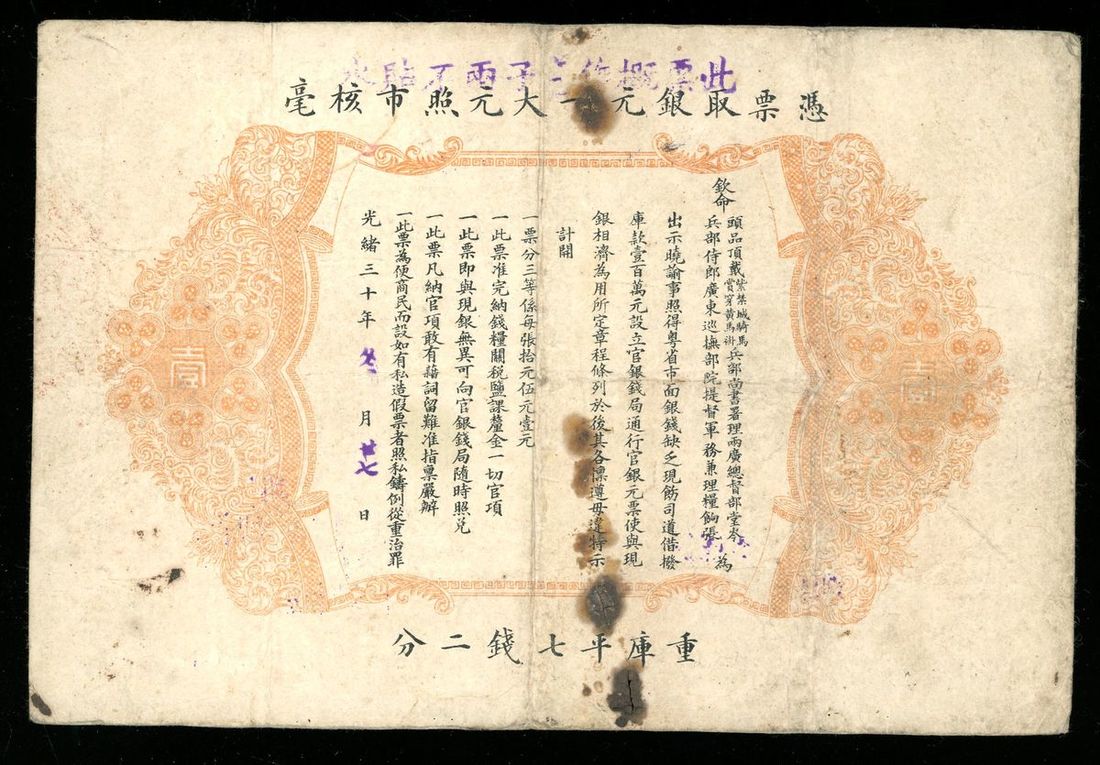 憑票取銀元一大元照市核毫
欽命
頭品頂戴紫禁城騎馬賞穿黃馬褂兵部尚書署理兩廣總督部堂岑
兵部侍郎廣東巡撫部院提督軍務兼理糧餉張
為
出示曉諭事照得粵省市面銀錢缺乏現飭司道借撥
庫款壹百萬元設立官銀錢局通行官銀元票使與現
銀相濟為用所定章程條列於後其各懍遵毋違特示
計開
一票分三等係每張拾元伍元壹元
一此票准完納錢糧關稅鹽課釐金一切官項
一此票即與現銀無異可向官銀錢局隨時照兌
一此票凡納官項敢有藉詞留難准指稟嚴辦
一此票為便商民而設如有私造假票者照私鑄例從重治罪
光緒三十年 月廿七日
重庫平七錢二分
壹
壹